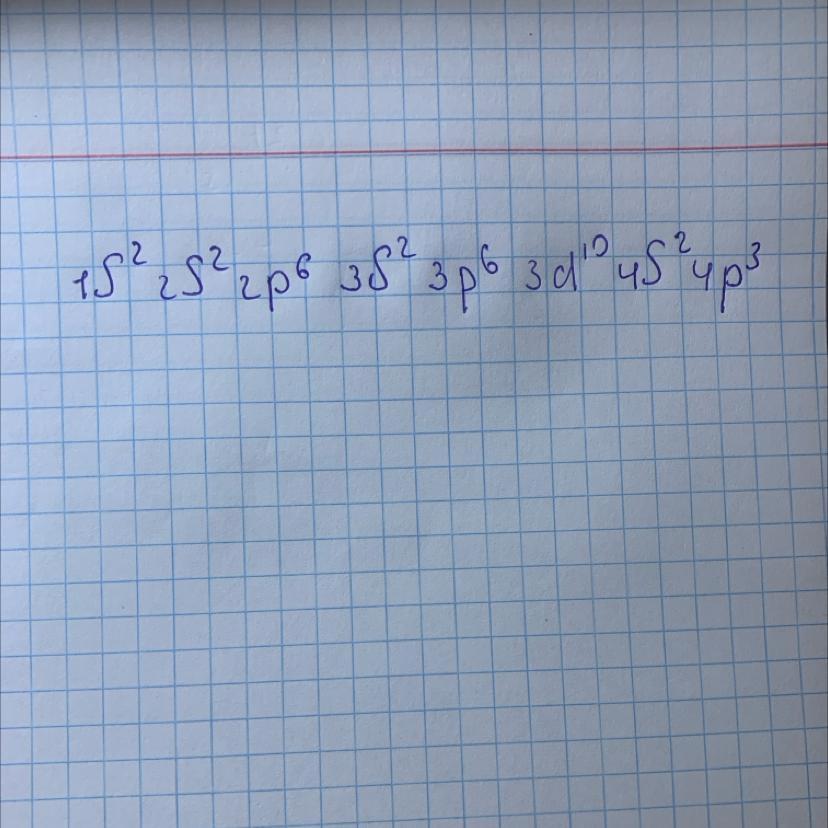 1S² 2S² 2p⁶ 3S² 3p⁶ 3d¹⁰ 4S² 4p³